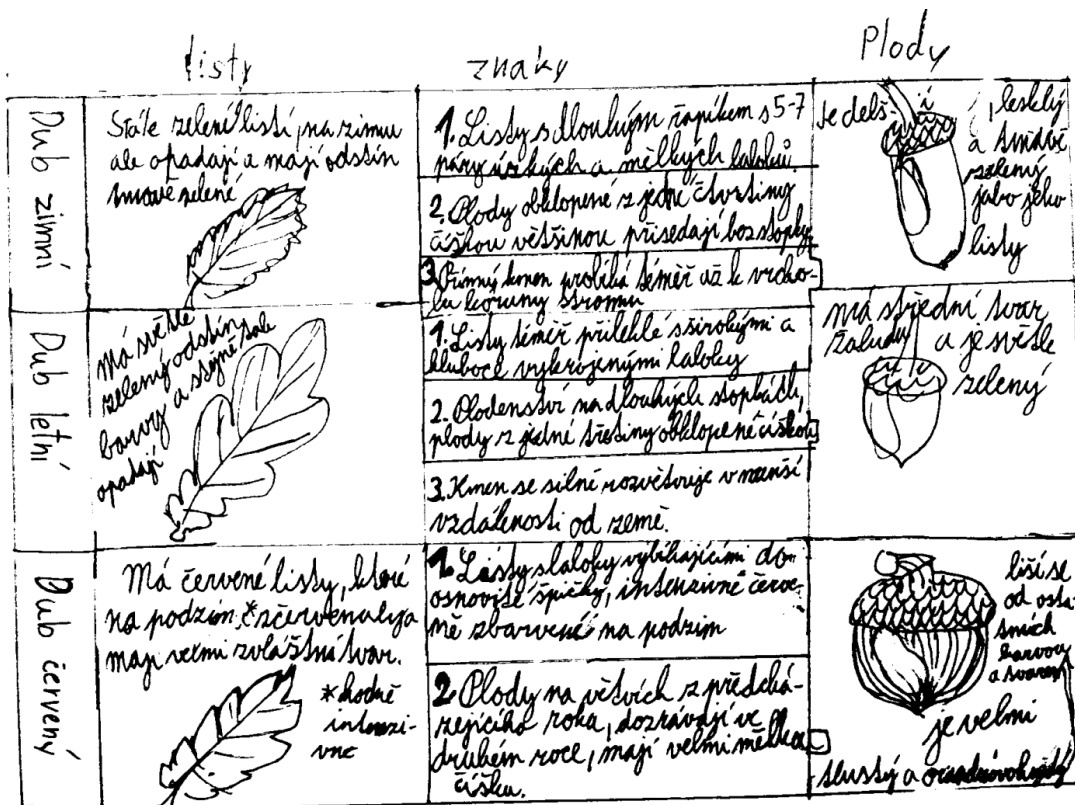 listy
znaky
Plody
Dub zimní
Stále zelené listí, na zimu
ale opadají a mají odstín
tmavě zelené
1. Listy s dlouhým řapíkem s 5-7
páry úzkých a mělkých laloků
2. Plody obklopené z jedné čtvrtiny
číškou většinou přisedají bez stopky
3. Přímý kmen probíhá téměř až k vrcho-
lu koruny stromu
Je delš-
í
, lesklý
a tmavě
zelený
jako jeho
listy
Dub letní
Má světle
zelený odstín
barvy a stejně tak
opadají
1. Listy téměř přilehlé s širokými a
hluboce vykrojenými laloky
2. Plodenství na dlouhých stopkách,
plody z jedné třetiny obklopené číškou
3. Kmen se silně rozvětvuje v menší
vzdálenosti od země.
má střední tvar
žaludu a je světle
zelený
Dub červený
Má červené listy, které
na podzim *zčervenaly a
mají velmi zvláštní tvar.
*hodně
intenzi-
vne
1. Listy s laloky vybíhajícími do
osnovité špičky, intenzivně červe-
ně zbarvené na podzim
2. Plody na větvích z předchá-
zejícího roka, dozrávají ve
druhém roce, mají velmi mělkou
číšku.
liší se
od osta-
tních
barvou
a tvarem
je velmi
tlustý a